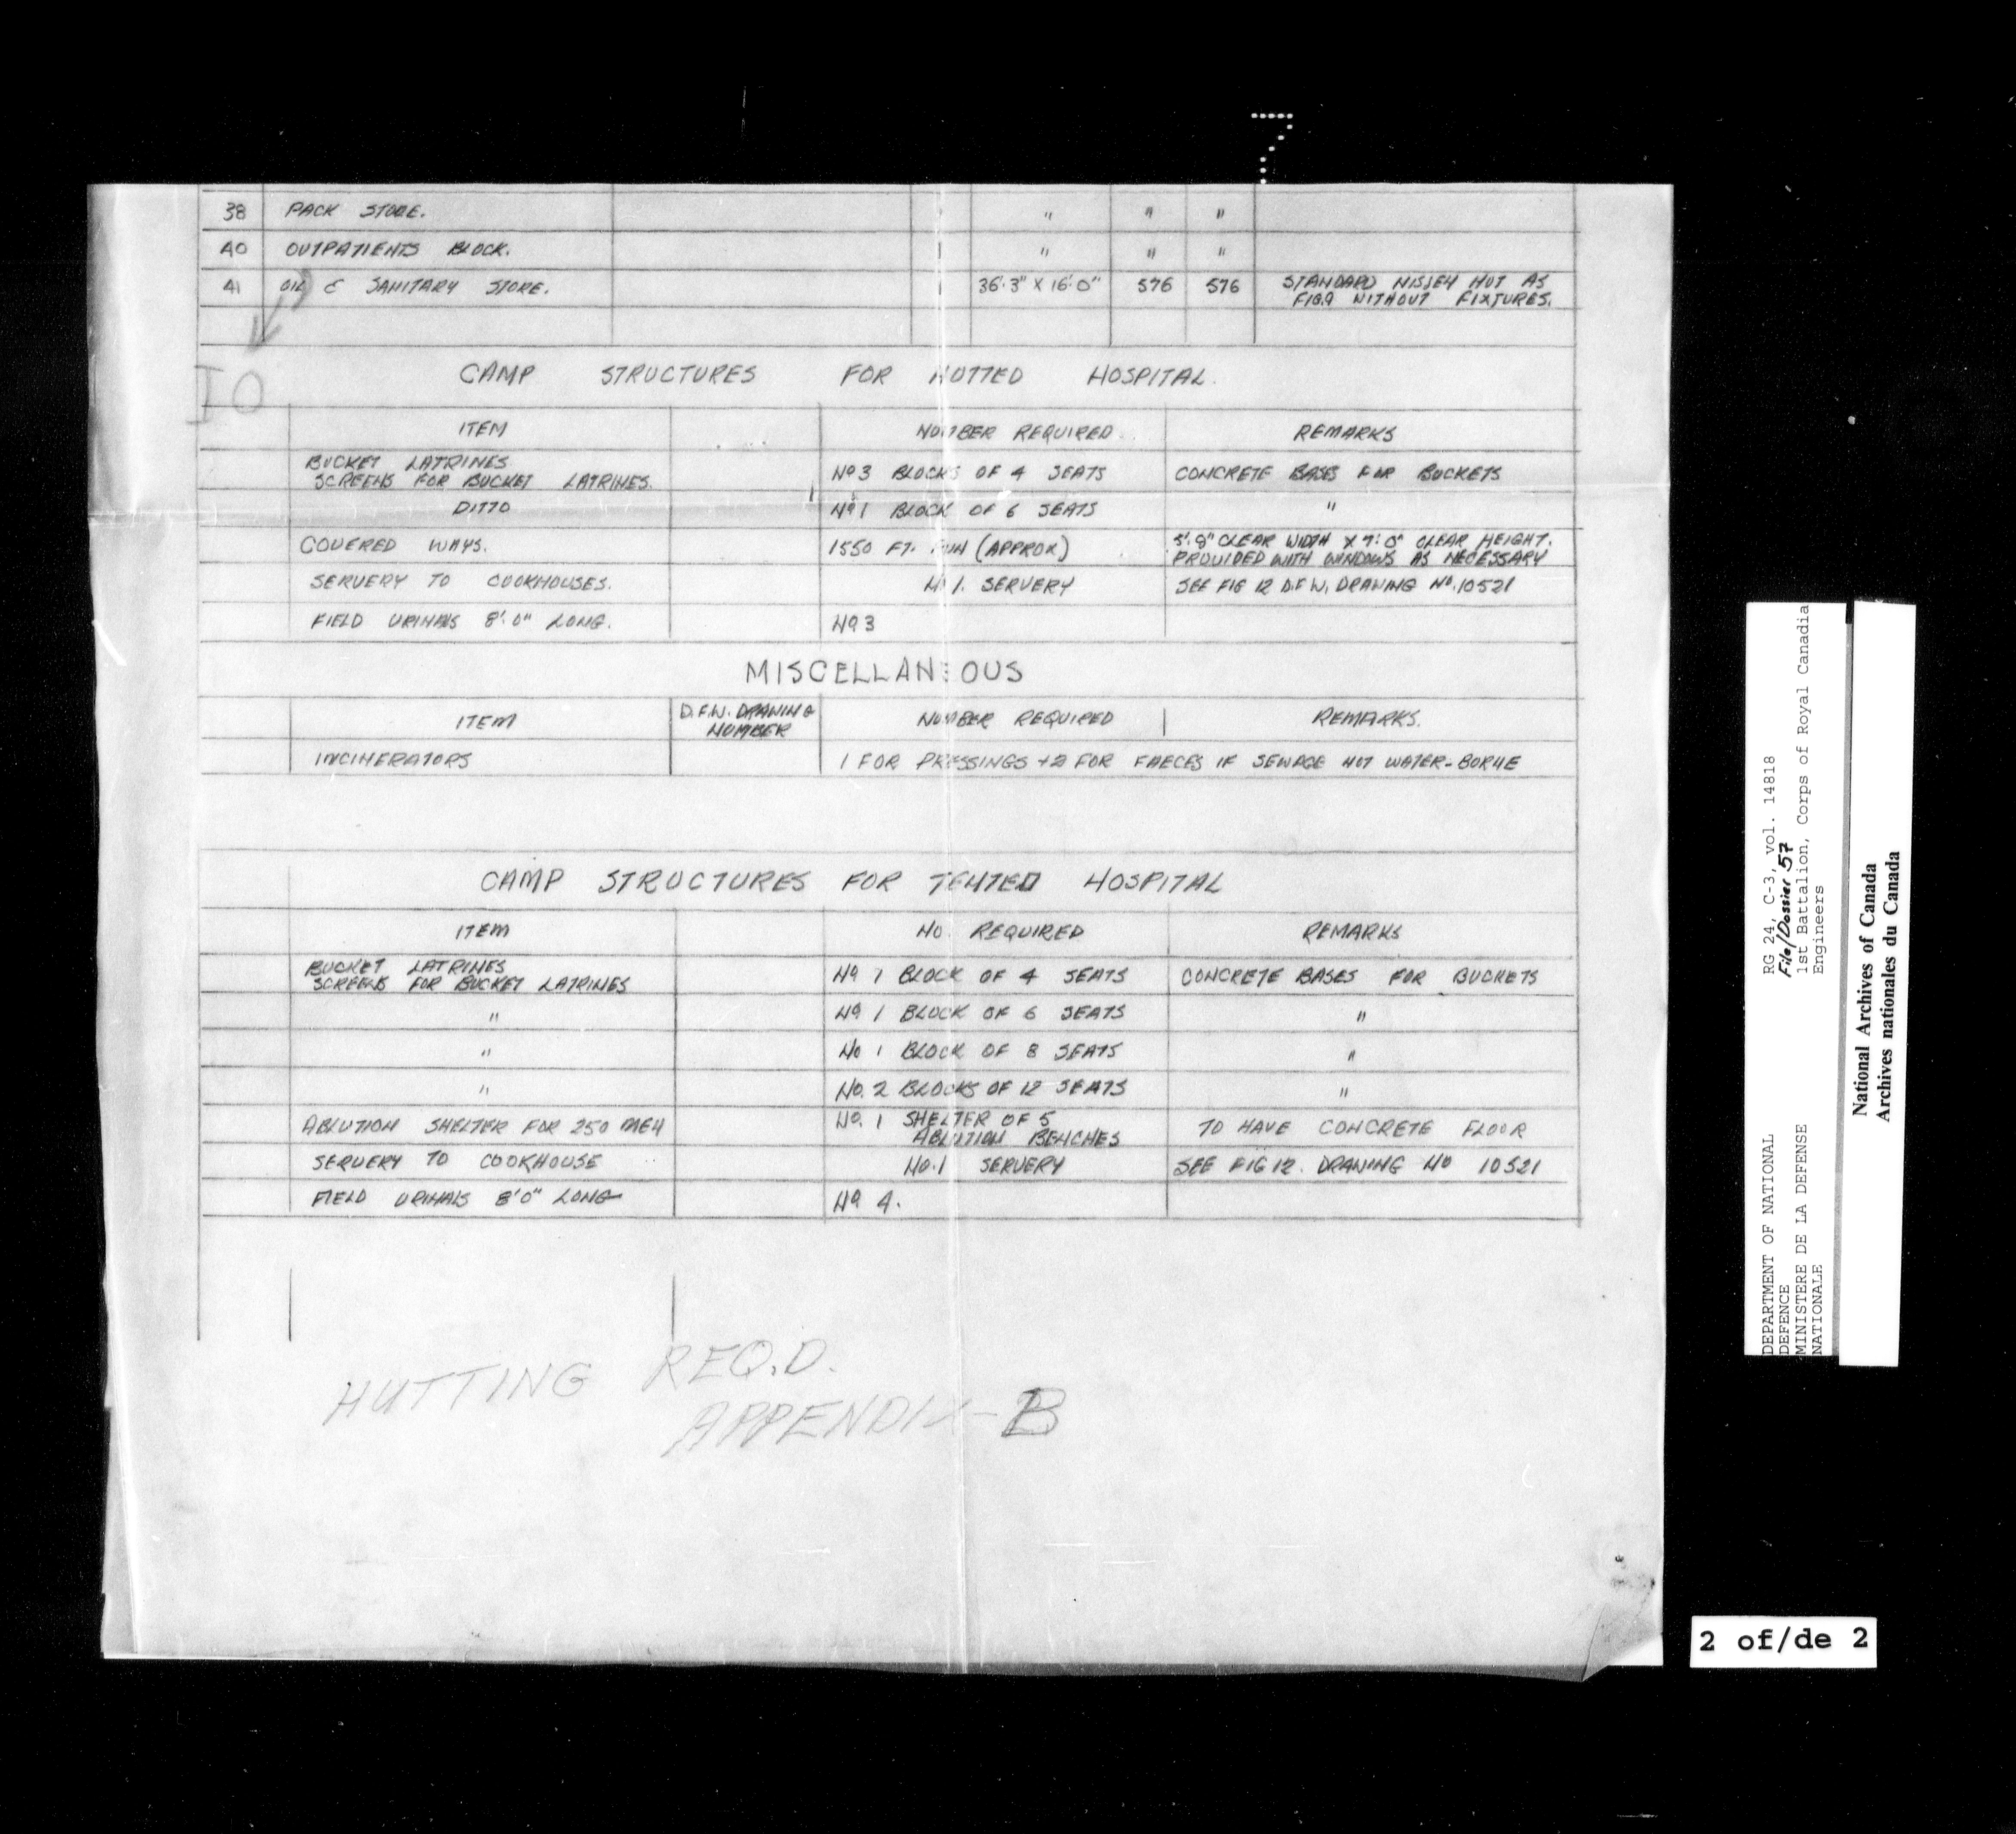 38 PACK STORE. 1 " " "
40 OUTPATIENTS BLOCK. 1 " " "
41 OIL & SANITARY STORE. 1 36'.3" X 16'.0" 576 576 STANDARD NISSEN HUT AS
FIG.9 WITHOUT FIXTURES.
CAMP STRUCTURES FOR HUTTED HOSPITAL.
ITEM NUMBER REQUIRED. REMARKS
BUCKET LATRINES
SCREENS FOR BUCKET LATRINES. No 3 BLOCKS OF 4 SEATS CONCRETE BASES FOR BUCKETS
DITTO No 1 BLOCK OF 6 SEATS "
COVERED WAYS. 1550 FT. RUN (APPROX) 5'.9" CLEAR WIDTH X 7'.0" CLEAR HEIGHT.
PROVIDED WITH WINDOWS AS NECESSARY
SERVERY TO COOKHOUSES. No 1. SERVERY SEE FIG 12 D.F.W. DRAWING No.10521
FIELD URINALS 8'.0" LONG. No 3
MISCELLANEOUS
ITEM D.F.W. DRAWING NUMBER NUMBER REQUIRED REMARKS.
INCINERATORS 1 FOR DRESSINGS +2 FOR FAECES IF SEWAGE NOT WATER-BORNE
CAMP STRUCTURES FOR TENTED HOSPITAL
ITEM No. REQUIRED REMARKS
BUCKET LATRINES
SCREENS FOR BUCKET LATRINES No 7 BLOCK OF 4 SEATS CONCRETE BASES FOR BUCKETS
" No 1 BLOCK OF 6 SEATS "
" No 1 BLOCK OF 8 SEATS "
" No. 2 BLOCKS OF 12 SEATS "
ABLUTION SHELTER FOR 250 MEN No. 1 SHELTER OF 5
ABLUTION BENCHES TO HAVE CONCRETE FLOOR
SERVERY TO COOKHOUSE No.1 SERVERY SEE FIG 12. DRAWING No 10521
FIELD URINALS 8'0" LONG No 4.
HUTTING REQ.D.
APPENDIX-B
DEPARTMENT OF NATIONAL
DEFENCE
MINISTERE DE LA DEFENSE
NATIONALE
RG 24, C-3, vol. 14818
File/Dossier 57
1st Battalion, Corps of Royal Canadia
Engineers
National Archives of Canada
Archives nationales du Canada
2 of/de 2